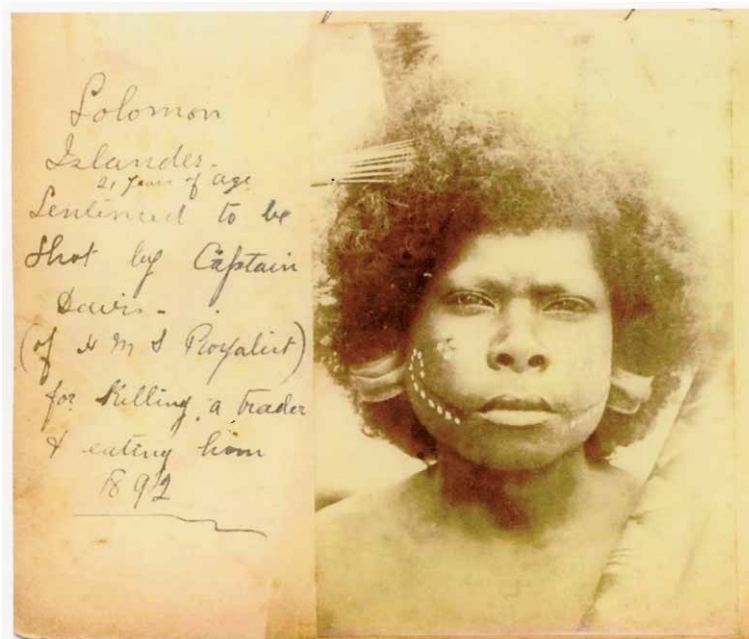 Solomon
Islander.
21 years of age
Sentenced to be
Shot by Captain
Davis.
(of H M S Royalist)
for killing a trader
& eating him
1892